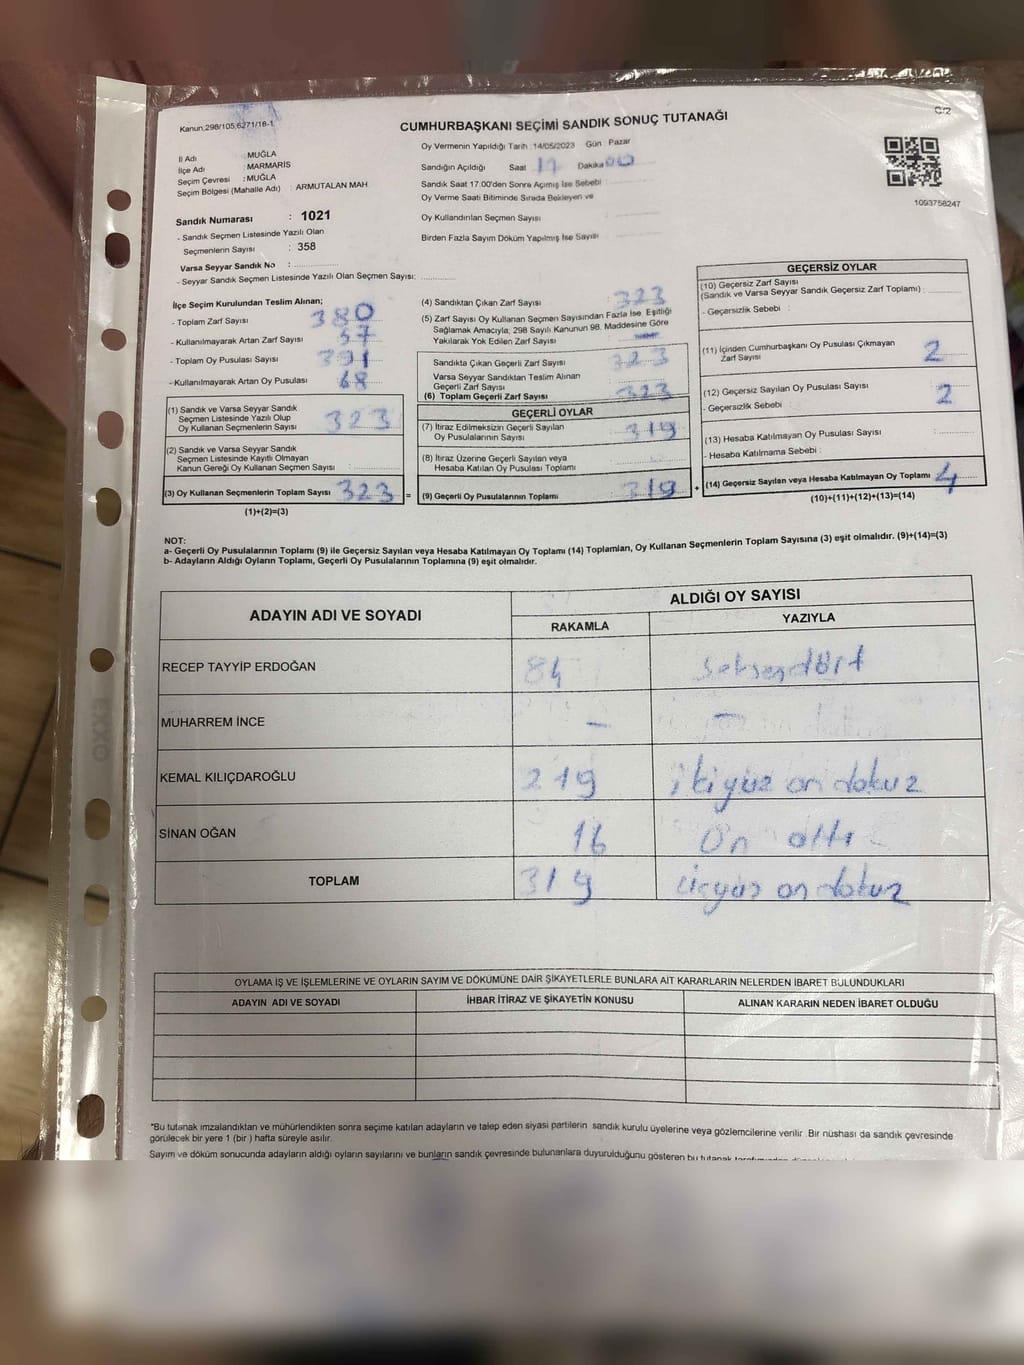 Kanun,298/105,6271/18-1
C/2
CUMHURBAŞKANI SEÇİMİ SANDIK SONUÇ TUTANAĞI
İl Adı : MUĞLA
İlçe Adı : MARMARİS
Seçim Çevresi : MUĞLA
Seçim Bölgesi (Mahalle Adı) : ARMUTALAN MAH
Sandık Numarası : 1021
- Sandık Seçmen Listesinde Yazılı Olan
Seçmenlerin Sayısı : 358
Varsa Seyyar Sandık No :
- Seyyar Sandık Seçmen Listesinde Yazılı Olan Seçmen Sayısı:
Oy Vermenin Yapıldığı Tarih : 14/05/2023 Gün : Pazar
Sandığın Açıldığı Saat 17 Dakika 00
Sandık Saat 17.00'den Sonra Açımış İse Sebebi
Oy Verme Saati Bitiminde Sırada Bekleyen ve
Oy Kullandırılan Seçmen Sayısı
Birden Fazla Sayım Döküm Yapılmış İse Sayısı
1093758247
İlçe Seçim Kurulundan Teslim Alınan;
- Toplam Zarf Sayısı 380
- Kullanılmayarak Artan Zarf Sayısı 57
- Toplam Oy Pusulası Sayısı 391
- Kullanılmayarak Artan Oy Pusulası 68
(1) Sandık ve Varsa Seyyar Sandık
Seçmen Listesinde Yazılı Olup
Oy Kullanan Seçmenlerin Sayısı 323
(2) Sandık ve Varsa Seyyar Sandık
Seçmen Listesinde Kayıtlı Olmayan
Kanun Gereği Oy Kullanan Seçmen Sayısı :
(3) Oy Kullanan Seçmenlerin Toplam Sayısı 323 =
(1)+(2)=(3)
(4) Sandıktan Çıkan Zarf Sayısı : 323
(5) Zarf Sayısı Oy Kullanan Seçmen Sayısından Fazla İse, Eşitliği
Sağlamak Amacıyla, 298 Sayılı Kanunun 98. Maddesine Göre
Yakılarak Yok Edilen Zarf Sayısı : —
Sandıkta Çıkan Geçerli Zarf Sayısı : 323
Varsa Seyyar Sandıktan Teslim Alınan
Geçerli Zarf Sayısı
(6) Toplam Geçerli Zarf Sayısı : 323
GEÇERLİ OYLAR
(7) İtiraz Edilmeksizin Geçerli Sayılan
Oy Pusulalarının Sayısı : 319
(8) İtiraz Üzerine Geçerli Sayılan veya
Hesaba Katılan Oy Pusulası Toplamı
(9) Geçerli Oy Pusulalarının Toplamı : 319 +
GEÇERSİZ OYLAR
(10) Geçersiz Zarf Sayısı
(Sandık ve Varsa Seyyar Sandık Geçersiz Zarf Toplamı) :
- Geçersizlik Sebebi :
(11) İçinden Cumhurbaşkanı Oy Pusulası Çıkmayan
Zarf Sayısı 2
(12) Geçersiz Sayılan Oy Pusulası Sayısı 2
- Geçersizlik Sebebi :
(13) Hesaba Katılmayan Oy Pusulası Sayısı
- Hesaba Katılmama Sebebi :
(14) Geçersiz Sayılan veya Hesaba Katılmayan Oy Toplamı 4
(10)+(11)+(12)+(13)=(14)
NOT:
a- Geçerli Oy Pusulalarının Toplamı (9) ile Geçersiz Sayılan veya Hesaba Katılmayan Oy Toplamı (14) Toplamları, Oy Kullanan Seçmenlerin Toplam Sayısına (3) eşit olmalıdır. (9)+(14)=(3)
b- Adayların Aldığı Oyların Toplamı, Geçerli Oy Pusulalarının Toplamına (9) eşit olmalıdır.
ADAYIN ADI VE SOYADI
ALDIĞI OY SAYISI
RAKAMLA YAZIYLA
RECEP TAYYİP ERDOĞAN 84 seksendört
MUHARREM İNCE – –
KEMAL KILIÇDAROĞLU 219 ikiyüz on dokuz
SİNAN OĞAN 16 On altı
TOPLAM 319 üçyüz on dokuz
OYLAMA İŞ VE İŞLEMLERİNE VE OYLARIN SAYIM VE DÖKÜMÜNE DAİR ŞİKAYETLERLE BUNLARA AİT KARARLARIN NELERDEN İBARET BULUNDUKLARI
ADAYIN ADI VE SOYADI İHBAR İTİRAZ VE ŞİKAYETİN KONUSU ALINAN KARARIN NEDEN İBARET OLDUĞU
"Bu tutanak imzalandıktan ve mühürlendikten sonra seçime katılan adayların ve talep eden siyasi partilerin sandık kurulu üyelerine veya gözlemcilerine verilir. Bir nüshası da sandık çevresinde
görülecek bir yere 1 (bir) hafta süreyle asılır.
Sayım ve döküm sonucunda adayların aldığı oyların sayılarını ve bunların sandık çevresinde bulunanlara duyurulduğunu gösteren bu tutanak
EXXO